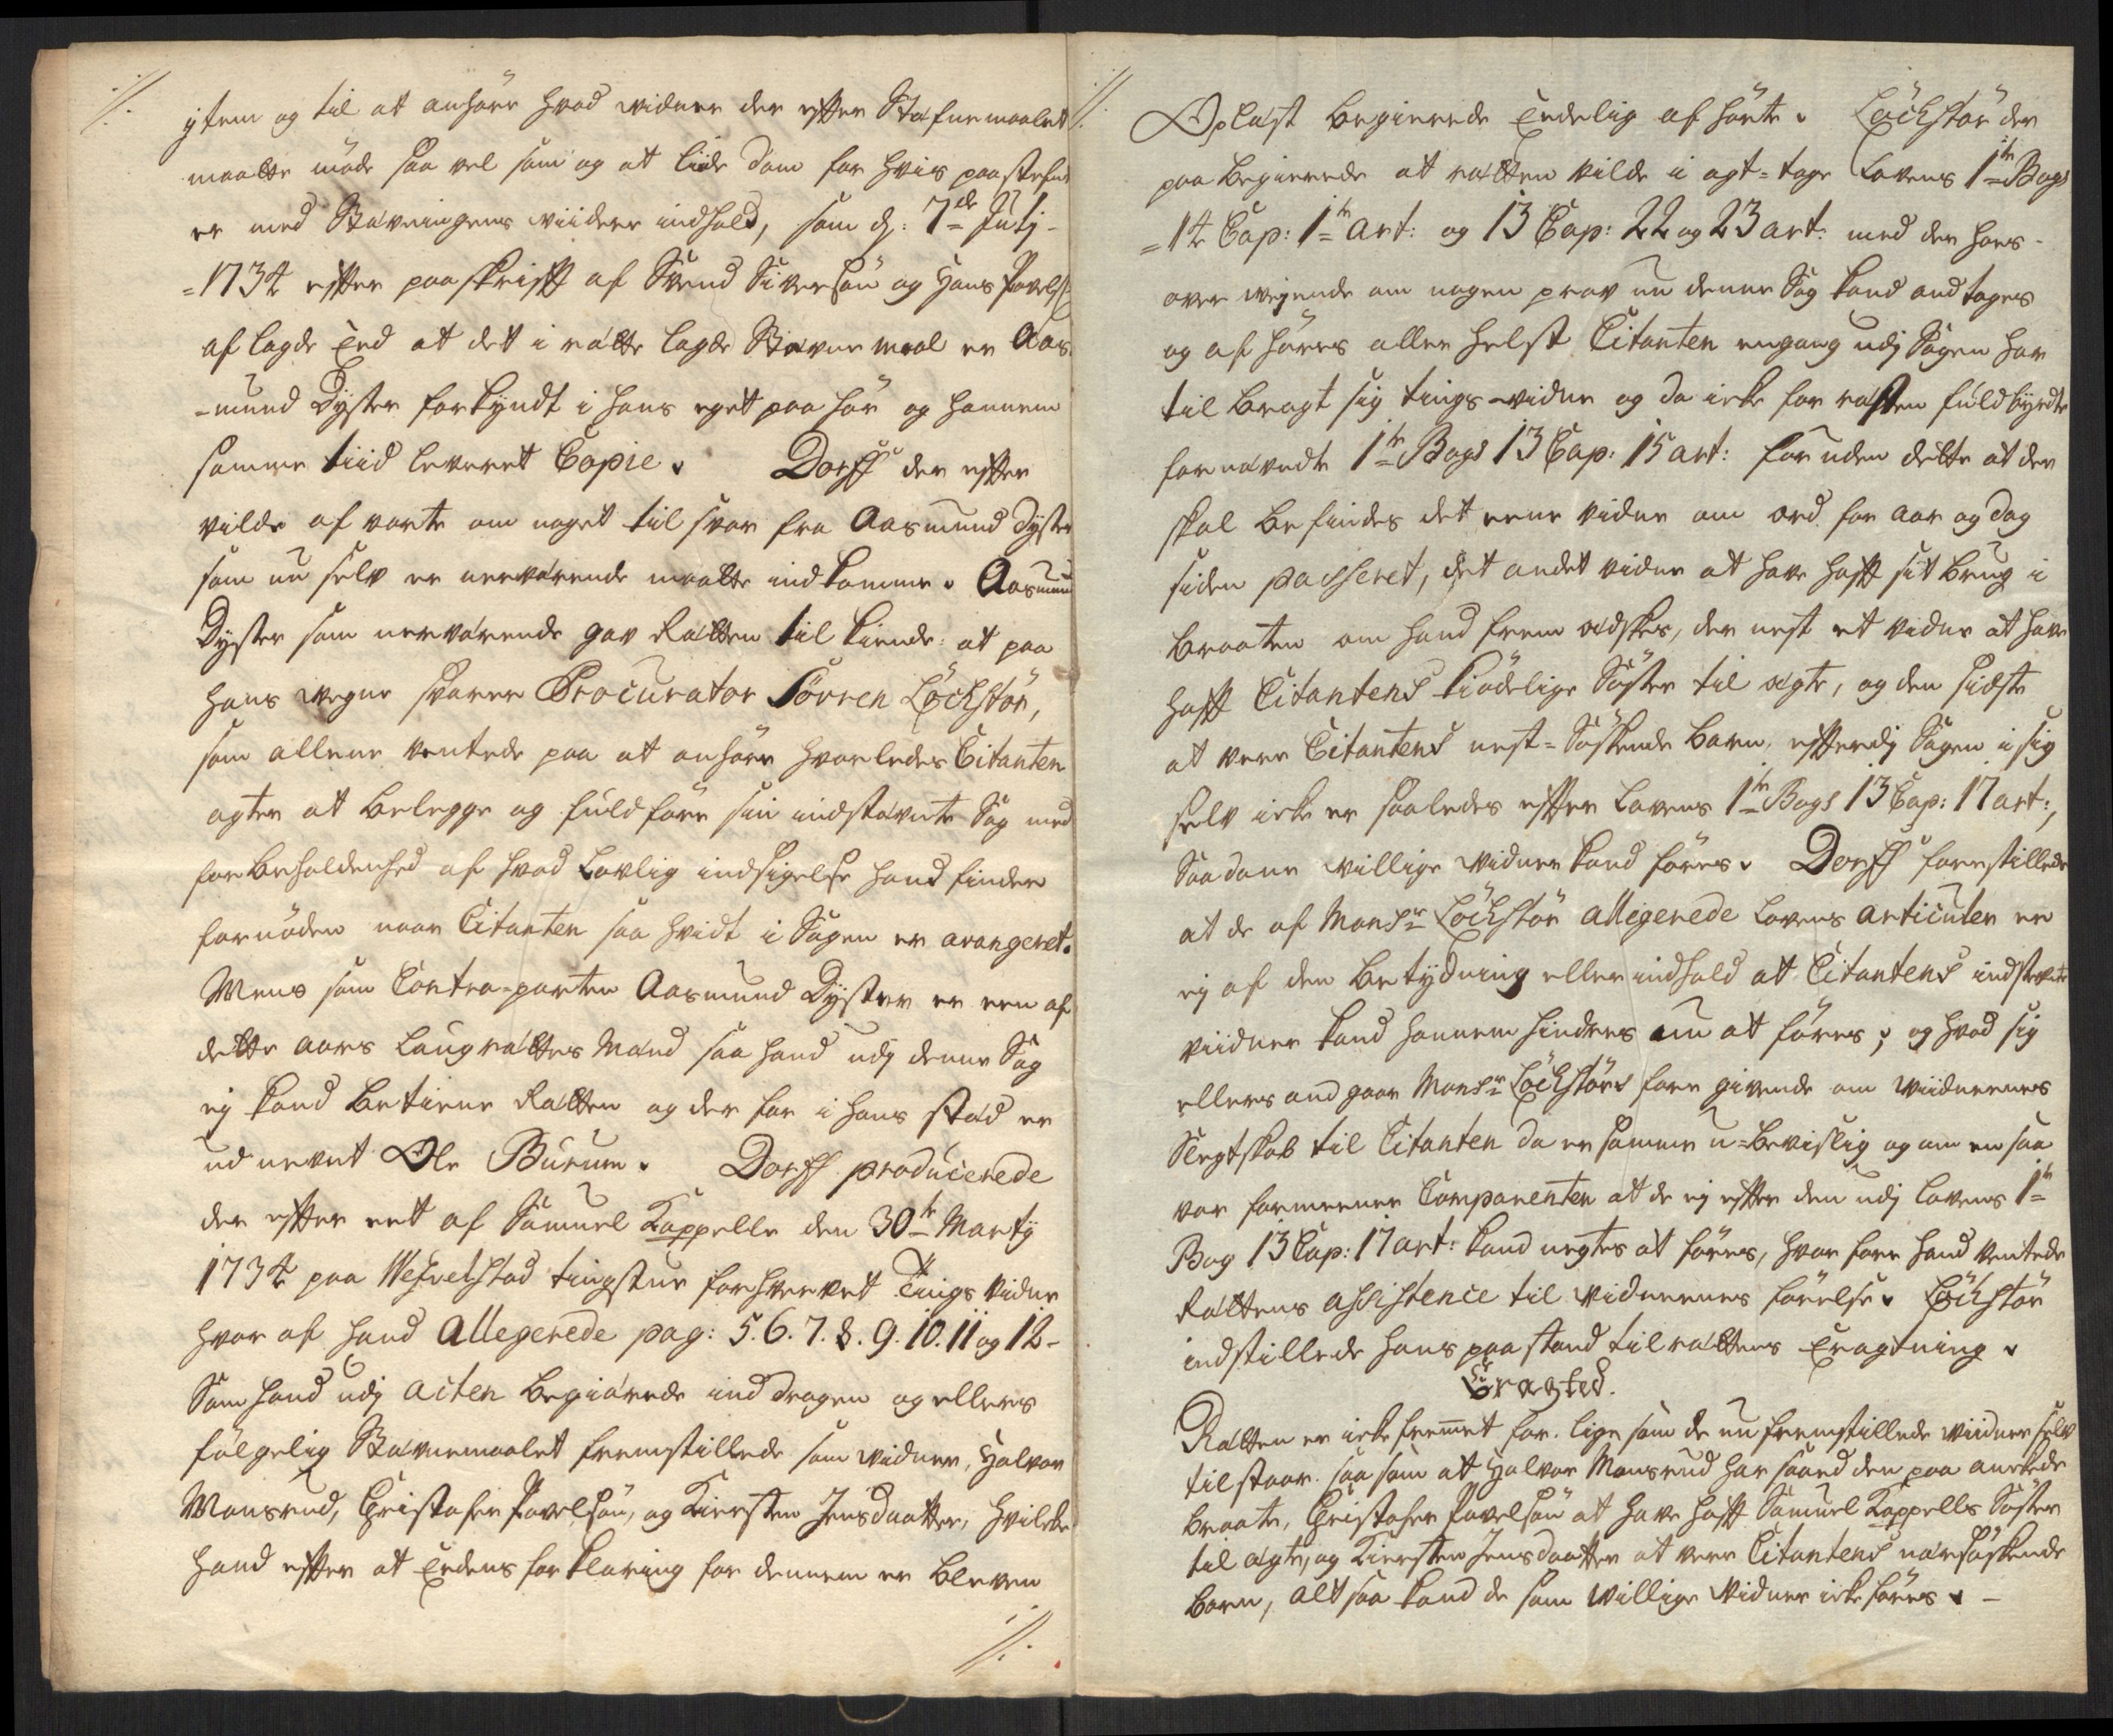 //.
ytem og til at anhöre hvad vidner der efter Stæfnemaalet
maatte møde saa vel som og at liide dom for hvis paastefnt
er med Stævningens viidere indhold, som dj: 7de Julj
=1734 efter paaskrifft af Svend Siversön og Hans Povels:
aflagde Eed at det i rætte lagde Stævnemaal er Aas
=mund Dyster forkyndt i hans eget paahör og hannem
samme tiid leveret Copie. Dorff der efter
vilde afvarte om noget til svar fra Aasmund Dyster
som nu selv er nerværende maatte indkomme. Aasmund
Dyster som nerværende gav Rætten tilkiende: at paa
hans vegne svarer Procurator Sövren Löchstör,
som allene ventede paa at anhöre hvorledes Citanten
agter at belegge og fuldföre sin indstævnte Sag med
forbeholdenhed af hvad Lovlig indsigelse hand finder
fornöden naar Citanten saa hvidt i Sagen er avangeret.
Mens som Contra-parten Aasmund Dyster er een af
dette aars Laugrættes Mænd saa hand udj denne Sag
ej kand betiene Rætten og der for i hans stæd er
udnevnt Ole Burum. Dorff producerede
der efter eet af Samuel Kappelle den 30te Martij
1734 paa Wefvelstad tingstue forhvervet Tings vidne
hvor af hand allegerede pag: 5. 6. 7. 8. 9. 10. 11 og 12-
Som hand udj acten begiærede inddragen og ellers
fölgelig Stævnemaalet fremstillede som vidner, Halvor
Monsrud, Christopher Povelsön, og Kiersten Jensdaatter, hvilcke
hand efter at Eedens forklaring for dennem er bleven
//.
//.
Oplæst begierede Eedelig afhörte. Löchstör der
paa begierede at rætten vilde i agt-tage Lovens 1te Bogs
=14 Cap: 1te art: og 13 Cap: 22 og 23 art: med der hos-
overvejende om nogen prov nu denne Sag kand andtages
og afhöres aller helst Citanten engang udj Sagen har
tilbragt sig tings-vidne og da icke for rætten fuldbyrdte
fornævnte 1te Bogs 13 Cap: 15 art: foruden dette at der
skal befindes det eene vidne om ord for aar og dag
siden passeret, det andet vidne at have hafft sit brug i
braaten om hand fremædskes, der nest et vidne at have
hafft Citantens kiödelige Söster til ægte, og den sidste
at vere Citantens nest-Söskende barn, efterdj Sagen i sig
selv icke er saaledes efter Lovens 1te Bogs 13 Cap: 17 art:,
Saadane villige vidner kand föres. Dorff forestillede
at de af Monsr Löchstör allegerede Lovens articuler er
ej af den betydning eller indhold at Citantens indstevnte
viidner kand hannem hindres nu at föres; og hvad sig
ellers and gaar Monsr Löchstörs fore givende om viidnernes
Slegtskab til Citanten da er samme u-bevislig og om en saa
var formeener Comparenten at de ej efter den udj Lovens 1te
Bog 13 Cap: 17 art: kand negtes at föres, hvor fore hand ventede
Rættens assistence til vidnernes förelse. Löchstör
indstillede hans paastand til rættens Eragtning.
Eragted.
Rætten er icke fremmet for. lige som de nu fremstillede viidner selv
tilstaar. saa som at Halvor Monsrud har saaed den paa anckede
braate, Christopher Povelsön at have hafft Samuel Kappells Söster
til ægte, og Kiersten Jensdaatter at vere Citantens nærsöskende
barn, altsaa kand de som villige vidner icke föres. -